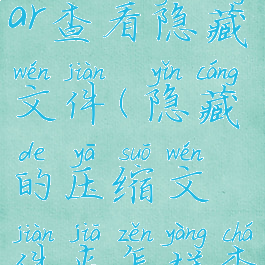 ar查看隐藏
wén jiàn yǐn cáng
文件(隐藏
de yā suō wén
的压缩文
jiàn jiā zěn yàng chá
件夹怎样查